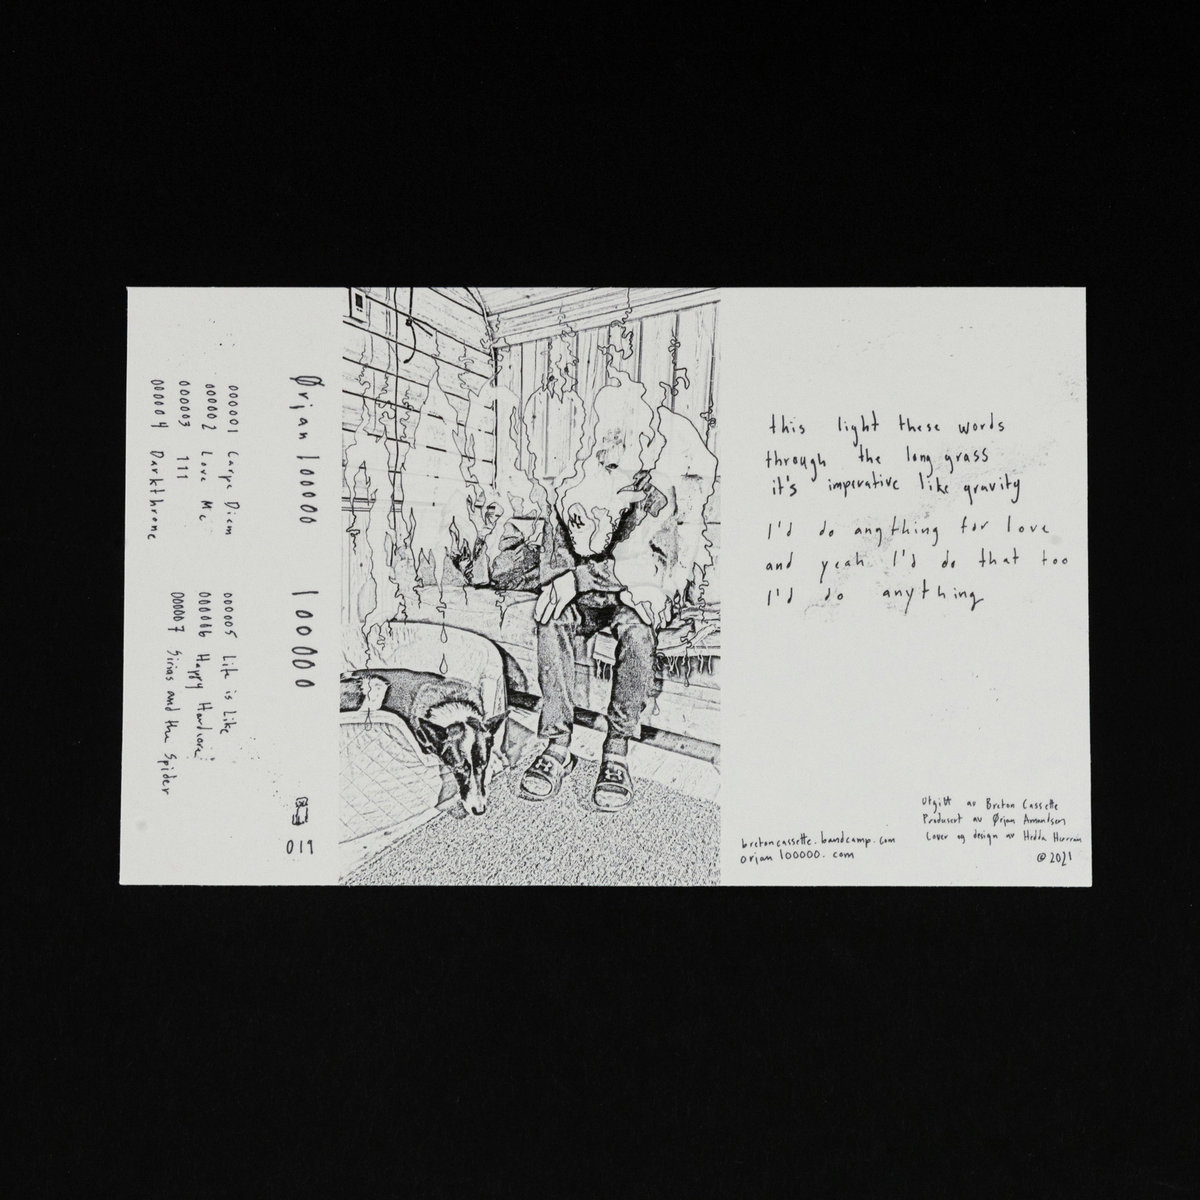 000001 Carpe Diem
000002 Love Me
000003 111
000004 Darkthrone
000005 Life is Like
000006 Happy Hardcore
000007 Sirius and the Spider
Ørjan 100000 100000
019
this light these words
through the long grass
it's imperative like gravity
I'd do anything for love
and yeah I'd do that too
I'd do anything
Utgitt av Breton Cassette
Produsert av Ørjan Amundsen
Cover og design av Hedda
bretoncassette.bandcamp.com
orjan100000.com
@ 2021